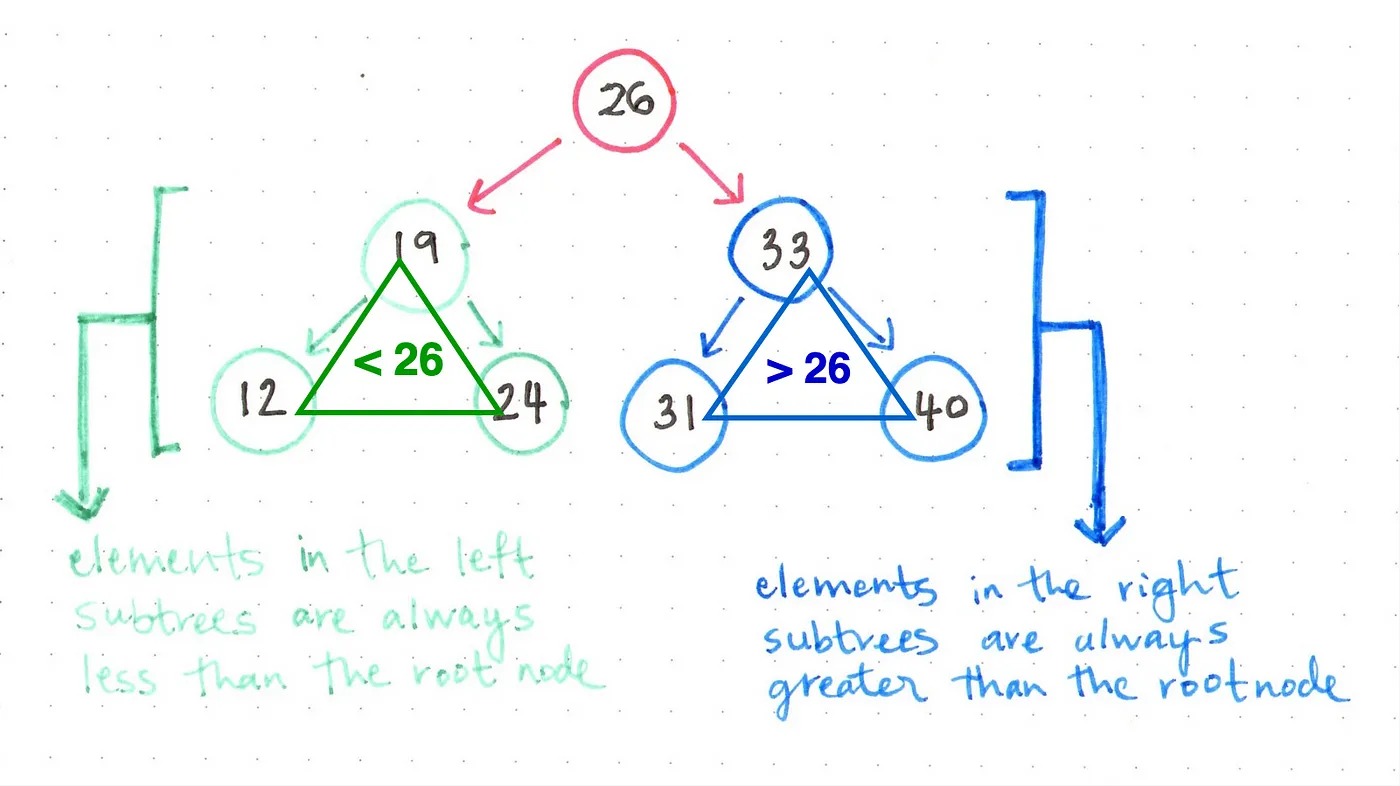 26
19
33
< 26
> 26
12
24
31
40
elements in the left
subtrees are always
less than the root node
elements in the right
subtrees are always
greater than the root node